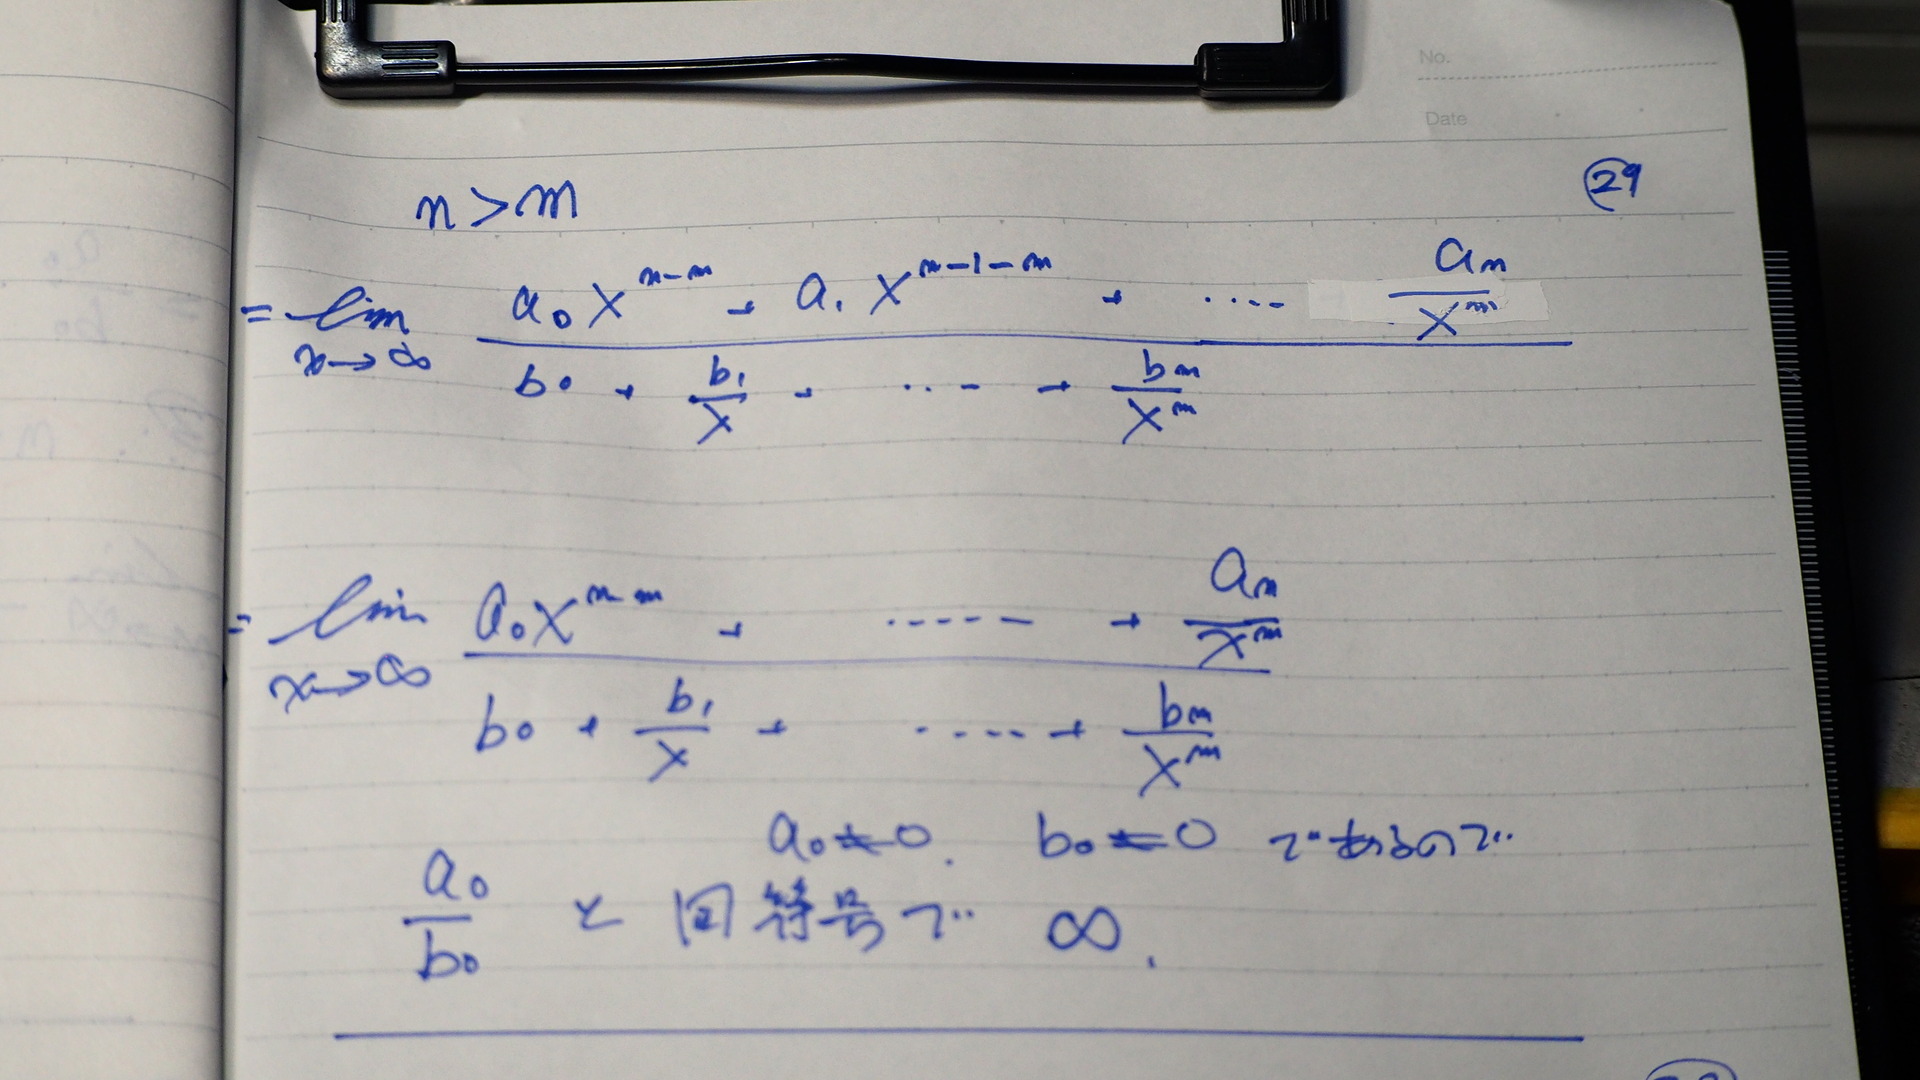 No.
Date
29
n > m
= lim x→∞ (a₀x^{n-m} + a₁x^{n-1-m} + ···· aₙ/x^m) / (b₀ + b₁/x + ··· + bₘ/x^m)
= lim x→∞ (a₀x^{n-m} + ····· + aₙ/x^m) / (b₀ + b₁/x + ····· + bₘ/x^m)
a₀≠0. b₀≠0 であるので
a₀/b₀ と同符号で ∞.